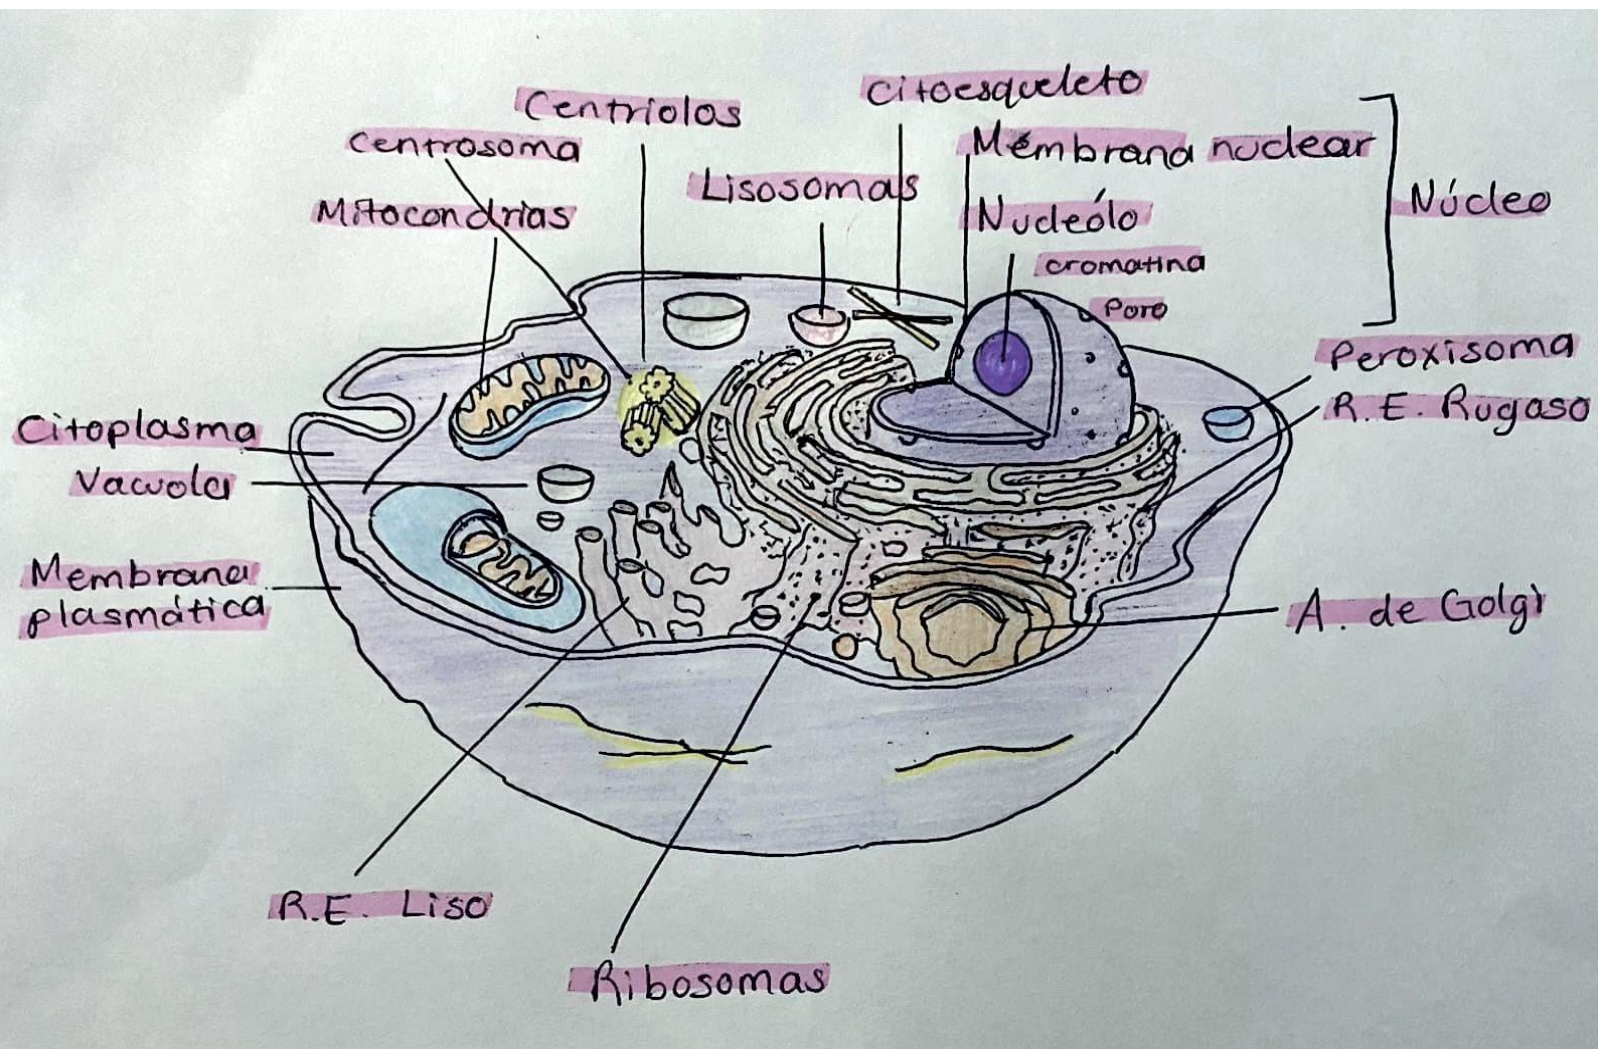 Centriolos
Citoesqueleto
Centrosoma
Membrana nuclear
Lisosomas
Mitocondrias
Nucleólo
Núcleo
cromatina
Poro
Peroxisoma
R.E. Rugaso
Citoplasma
Vacuola
Membrana
plasmática
A. de Golgi
R.E. Liso
Ribosomas